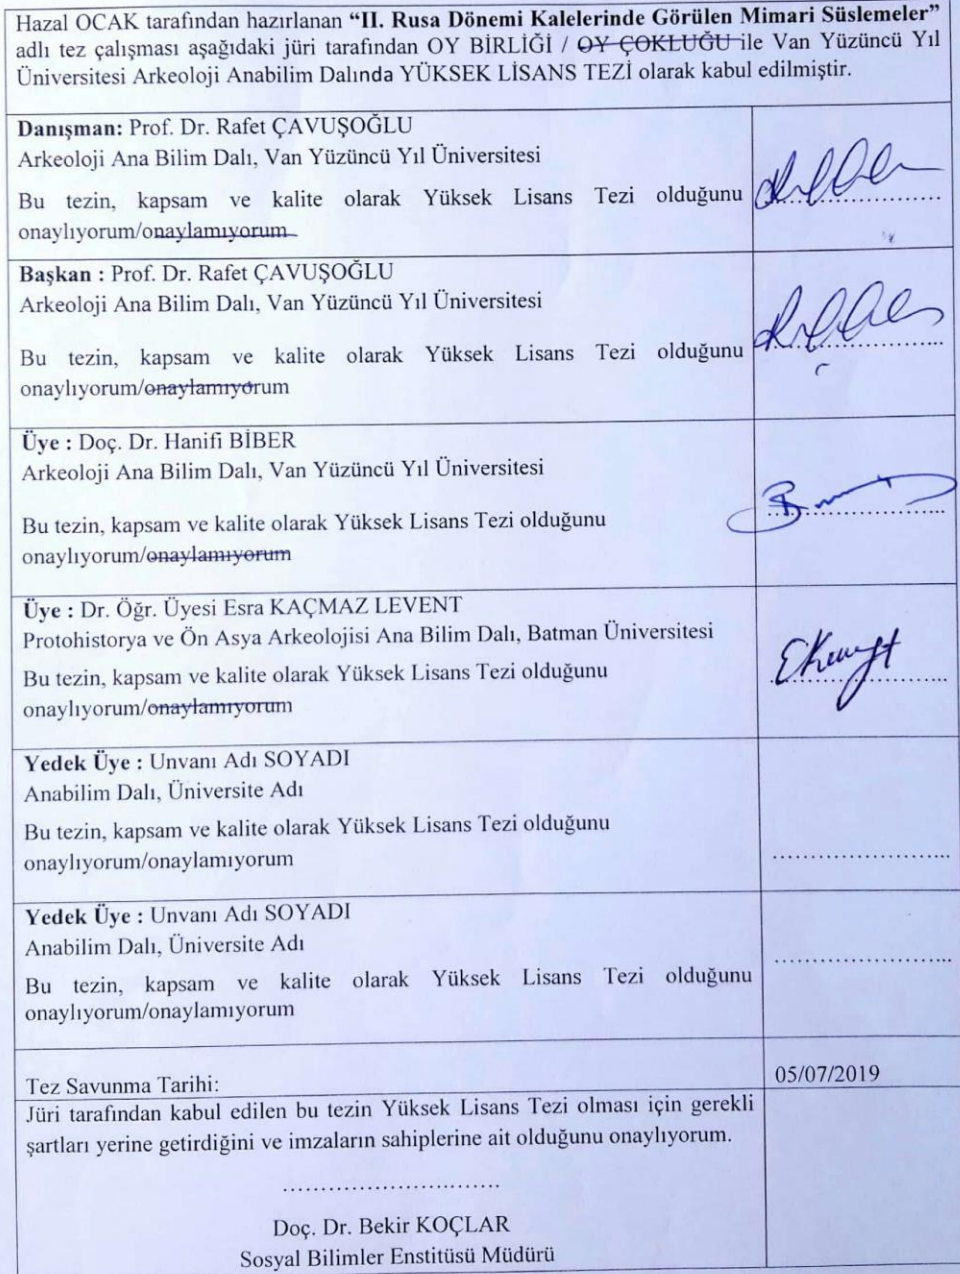 Hazal OCAK tarafından hazırlanan “II. Rusa Dönemi Kalelerinde Görülen Mimari Süslemeler”
adlı tez çalışması aşağıdaki jüri tarafından OY BİRLİĞİ / OY ÇOKLUĞU ile Van Yüzüncü Yıl
Üniversitesi Arkeoloji Anabilim Dalında YÜKSEK LİSANS TEZİ olarak kabul edilmiştir.
Danışman: Prof. Dr. Rafet ÇAVUŞOĞLU
Arkeoloji Ana Bilim Dalı, Van Yüzüncü Yıl Üniversitesi
Bu tezin, kapsam ve kalite olarak Yüksek Lisans Tezi olduğunu
onaylıyorum/onaylamıyorum
Başkan : Prof. Dr. Rafet ÇAVUŞOĞLU
Arkeoloji Ana Bilim Dalı, Van Yüzüncü Yıl Üniversitesi
Bu tezin, kapsam ve kalite olarak Yüksek Lisans Tezi olduğunu
onaylıyorum/onaylamıyorum
Üye : Doç. Dr. Hanifi BİBER
Arkeoloji Ana Bilim Dalı, Van Yüzüncü Yıl Üniversitesi
Bu tezin, kapsam ve kalite olarak Yüksek Lisans Tezi olduğunu
onaylıyorum/onaylamıyorum
Üye : Dr. Öğr. Üyesi Esra KAÇMAZ LEVENT
Protohistorya ve Ön Asya Arkeolojisi Ana Bilim Dalı, Batman Üniversitesi
Bu tezin, kapsam ve kalite olarak Yüksek Lisans Tezi olduğunu
onaylıyorum/onaylamıyorum
Yedek Üye : Unvanı Adı SOYADI
Anabilim Dalı, Üniversite Adı
Bu tezin, kapsam ve kalite olarak Yüksek Lisans Tezi olduğunu
onaylıyorum/onaylamıyorum
Yedek Üye : Unvanı Adı SOYADI
Anabilim Dalı, Üniversite Adı
Bu tezin, kapsam ve kalite olarak Yüksek Lisans Tezi olduğunu
onaylıyorum/onaylamıyorum
Tez Savunma Tarihi: 05/07/2019
Jüri tarafından kabul edilen bu tezin Yüksek Lisans Tezi olması için gerekli
şartları yerine getirdiğini ve imzaların sahiplerine ait olduğunu onaylıyorum.
Doç. Dr. Bekir KOÇLAR
Sosyal Bilimler Enstitüsü Müdürü